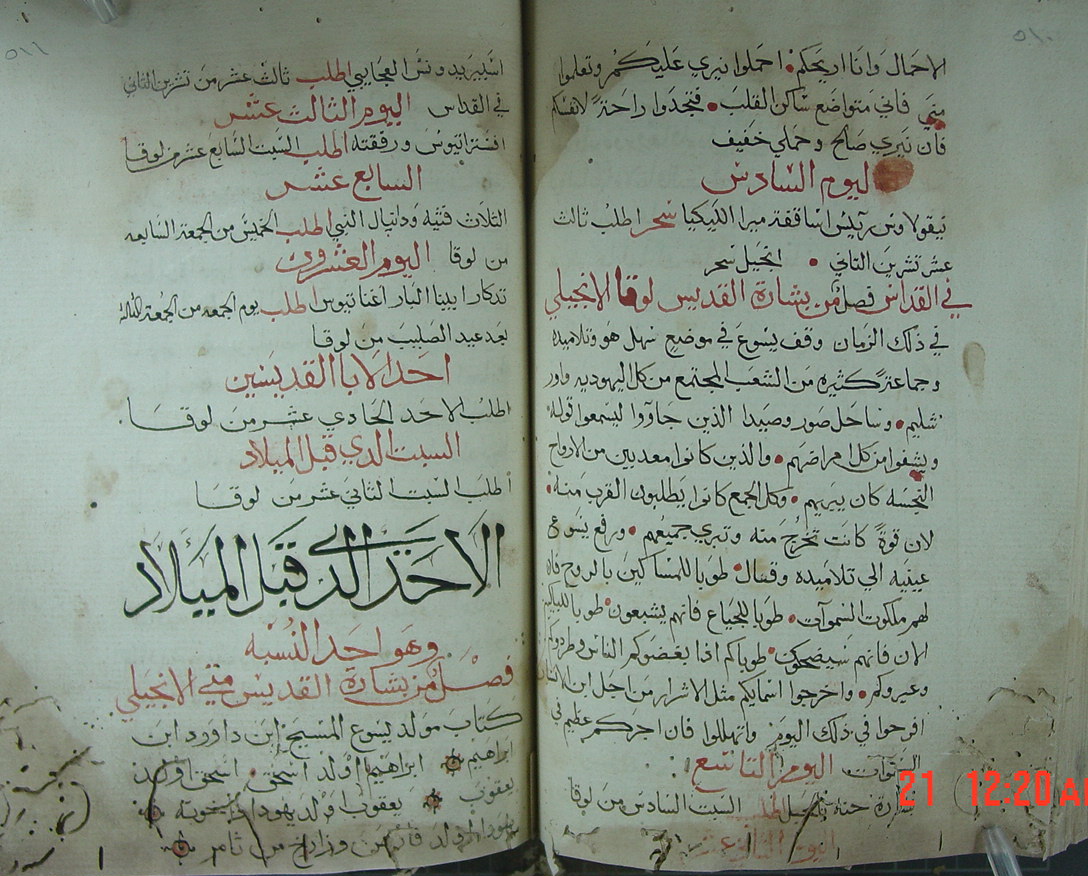 ٥١٠
الاحمال وانا اريحكم احملوا نيري عليكم وتعلموا
مني فاني متواضع ساكن القلب فتجدوا راحة لانفسكم
فان نيري صالح وحملي خفيف
اليوم السادس
نيقولاوس رييس اساقفة ميرا الليكيا سحر اطلب ثالث
عشر تشرين الثاني انجيل سحر
في القداس فصل من بشارة القديس لوقا الانجيلي
في ذلك الزمان وقف يسوع في موضع سهل هو وتلاميذه
وجماعة كثيره من الشعب المجتمع من كل اليهوديه واور
شليم وساحل صور وصيدا الذين جاووا ليسمعوا قوله
ويشفوا من كل امراضهم والذين كانوا معدبين من الارواح
النجسه كان يبريهم وكل الجمع كانوا يطلبون القرب منه
لان قوة كانت تخرج منه وتبري جميعهم ورفع يسوع
عينيه الي تلاميذه وقال طوبا للمساكين بالروح فان
لهم ملكوت السموات طوبا للجياع فانهم يشبعون طوبا للباكين
الان فانهم سيضحكون طوباكم اذا بغضوكم الناس وطردوكم
وعيروكم واخرجوا اسمايكم مثل الاشرار من اجل ابن الانسان
افرحوا في ذلك اليوم وتهللوا فان اجركم عظيم في
السموات اليوم التاسع
حنة السبت السادس من لوقا
اليوم
21 12:20 AM
٥١١
اسبيريدونس العجايبي اطلب ثالث عشر من تشرين الثاني
في القداس اليوم الثالث عشر
افستراتيوس ورفقته اطلب السبت السابع عشر من لوقا
السابع عشر
الثلاث فتيه ودانيال النبي اطلب الخميس من الجمعة السابعه
من لوقا اليوم العشرون
تدكار ابينا البار اغناتيوس اطلب يوم الجمعه من الجمعة الثالثة
بعد عيد الصليب من لوقا
احد الابا القديسين
اطلب الاحد الحادي عشر من لوقا
السبت الدي قبل الميلاد
اطلب السبت الثاني عشر من لوقا
الاحد الدي قبل الميلاد
وهو احد النسبه
فصل من بشارة القديس متي الانجيلي
كتاب مولد يسوع المسيح ابن داوود ابن
ابراهيم ابراهيم اولد اسحق اسحق اولد
يعقوب يعقوب اولد يهودا واخوته
يهودا اولد فارص وزارح من ثامر